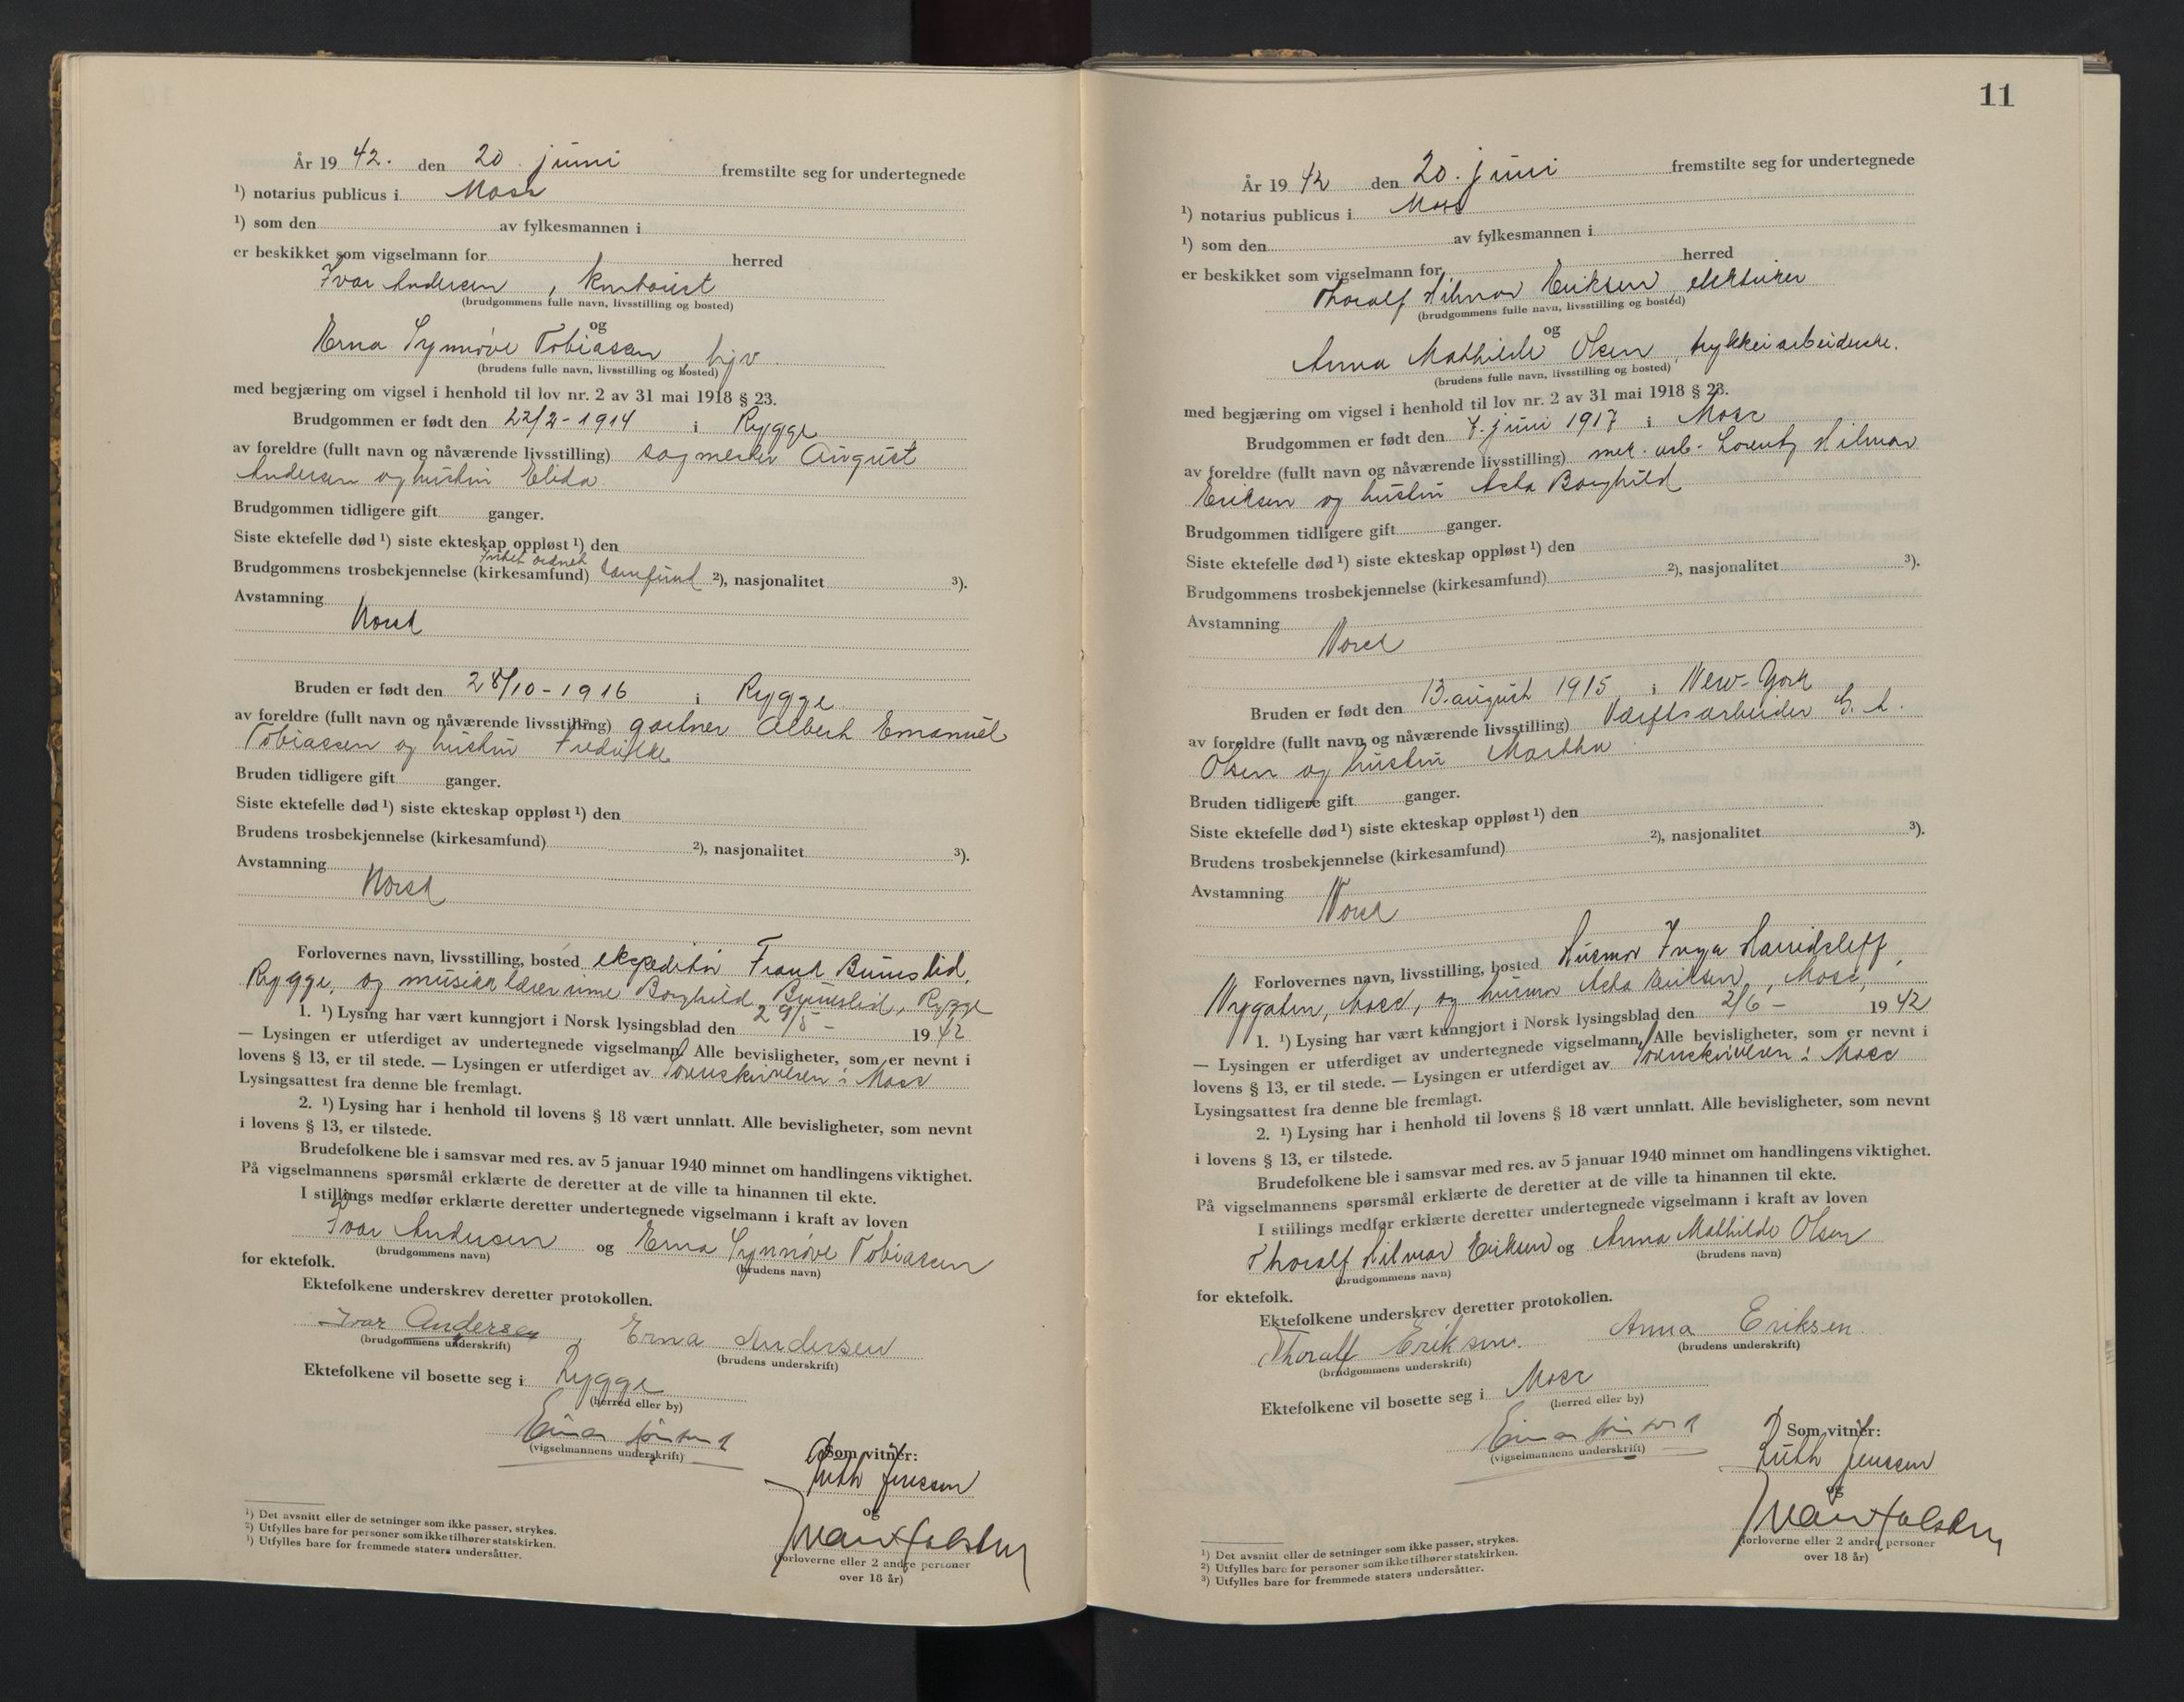 År 19 42. den 20. juni fremstilte seg for undertegnede
¹) notarius publicus i Moss
¹) som den av fylkesmannen i
er beskikket som vigselmann for herred
Ivar Andersen,
(brudgommens fulle navn, livsstilling og bosted)
og
Erna Synnøve Tobiassen,
(brudens fulle navn, livsstilling og bosted)
med begjæring om vigsel i henhold til lov nr. 2 av 31 mai 1918 § 23.
Brudgommen er født den 22/2-1914 i Rygge
av foreldre (fullt navn og nåværende livsstilling) sagmester August
Andersen og hustru Elida
Brudgommen tidligere gift ganger.
Siste ektefelle død ¹) siste ekteskap oppløst ¹) den
Intet ordnet
Brudgommens trosbekjennelse (kirkesamfund) samfund ²), nasjonalitet ³).
Avstamning
Norsk
Bruden er født den 28/10-1916 i Rygge
av foreldre (fullt navn og nåværende livsstilling) gartner Albert Emanuel
Tobiassen og hustru Fredrikke
Bruden tidligere gift ganger.
Siste ektefelle død ¹) siste ekteskap oppløst ¹) den
Brudens trosbekjennelse (kirkesamfund) ²), nasjonalitet ³).
Avstamning
Norsk
Forlovernes navn, livsstilling, bosted ekspeditør
Rygge, og musikklærerinne Borghild Rygge
1. ¹) Lysing har vært kunngjort i Norsk lysingsblad den 29/5- 19 42
— Lysingen er utferdiget av undertegnede vigselmann. Alle bevisligheter, som er nevnt i
lovens § 13, er til stede. — Lysingen er utferdiget av Sorenskriveren i Moss
Lysingsattest fra denne ble fremlagt.
2. ¹) Lysing har i henhold til lovens § 18 vært unnlatt. Alle bevisligheter, som nevnt
i lovens § 13, er tilstede.
Brudefolkene ble i samsvar med res. av 5 januar 1940 minnet om handlingens viktighet.
På vigselmannens spørsmål erklærte de deretter at de ville ta hinannen til ekte.
I stillings medfør erklærte deretter undertegnede vigselmann i kraft av loven
Ivar Andersen og Erna Synnøve Tobiassen
(brudgommens navn) (brudens navn)
for ektefolk.
Ektefolkene underskrev deretter protokollen.
Ivar Andersen, Erna Andersen
(brudgommens underskrift) (brudens underskrift)
Ektefolkene vil bosette seg i Rygge
(herred eller by)
(vigselmannens underskrift)
Som vitner:
Ruth Jenssen
og
(forloverne eller 2 andre personer
over 18 år)
¹) Det avsnitt eller de setninger som ikke passer, strykes.
²) Utfylles bare for personer som ikke tilhører statskirken.
³) Utfylles bare for fremmede staters undersåtter.
11
År 19 42 den 20. juni fremstilte seg for undertegnede
¹) notarius publicus i Moss
¹) som den av fylkesmannen i
er beskikket som vigselmann for herred
Thoralf Hilmar Eriksen, elektriker
(brudgommens fulle navn, livsstilling og bosted)
og
Anna Mathilde Olsen, trykkeriarbeiderske.
(brudens fulle navn, livsstilling og bosted)
med begjæring om vigsel i henhold til lov nr. 2 av 31 mai 1918 § 23.
Brudgommen er født den 7. juni 1917 i Moss
av foreldre (fullt navn og nåværende livsstilling) mek. arb. Lorentz Hilmar
Eriksen og hustru Asta Borghild
Brudgommen tidligere gift ganger.
Siste ektefelle død ¹) siste ekteskap oppløst ¹) den
Brudgommens trosbekjennelse (kirkesamfund) ²), nasjonalitet ³).
Avstamning
Norsk
Bruden er født den 13. august 1915 i New-York
av foreldre (fullt navn og nåværende livsstilling) Verftsarbeider
Olsen og hustru Martha
Bruden tidligere gift ganger.
Siste ektefelle død ¹) siste ekteskap oppløst ¹) den
Brudens trosbekjennelse (kirkesamfund) ²), nasjonalitet ³).
Avstamning
Norsk
Forlovernes navn, livsstilling, bosted Husmor Inga
Nygaten, Moss, og husmor Asta Eriksen, Moss,
1. ¹) Lysing har vært kunngjort i Norsk lysingsblad den 2/6- 19 42
— Lysingen er utferdiget av undertegnede vigselmann. Alle bevisligheter, som er nevnt i
lovens § 13, er til stede. — Lysingen er utferdiget av Sorenskriveren i Moss
Lysingsattest fra denne ble fremlagt.
2. ¹) Lysing har i henhold til lovens § 18 vært unnlatt. Alle bevisligheter, som nevnt
i lovens § 13, er tilstede.
Brudefolkene ble i samsvar med res. av 5 januar 1940 minnet om handlingens viktighet.
På vigselmannens spørsmål erklærte de deretter at de ville ta hinannen til ekte.
I stillings medfør erklærte deretter undertegnede vigselmann i kraft av loven
Thoralf Hilmar Eriksen og Anna Mathilde Olsen
(brudgommens navn) (brudens navn)
for ektefolk.
Ektefolkene underskrev deretter protokollen.
Thoralf Eriksen. Anna Eriksen.
(brudgommens underskrift) (brudens underskrift)
Ektefolkene vil bosette seg i Moss
(herred eller by)
(vigselmannens underskrift)
Som vitner:
Ruth Jenssen
og
(forloverne eller 2 andre personer
over 18 år)
¹) Det avsnitt eller de setninger som ikke passer, strykes.
²) Utfylles bare for personer som ikke tilhører statskirken.
³) Utfylles bare for fremmede staters undersåtter.